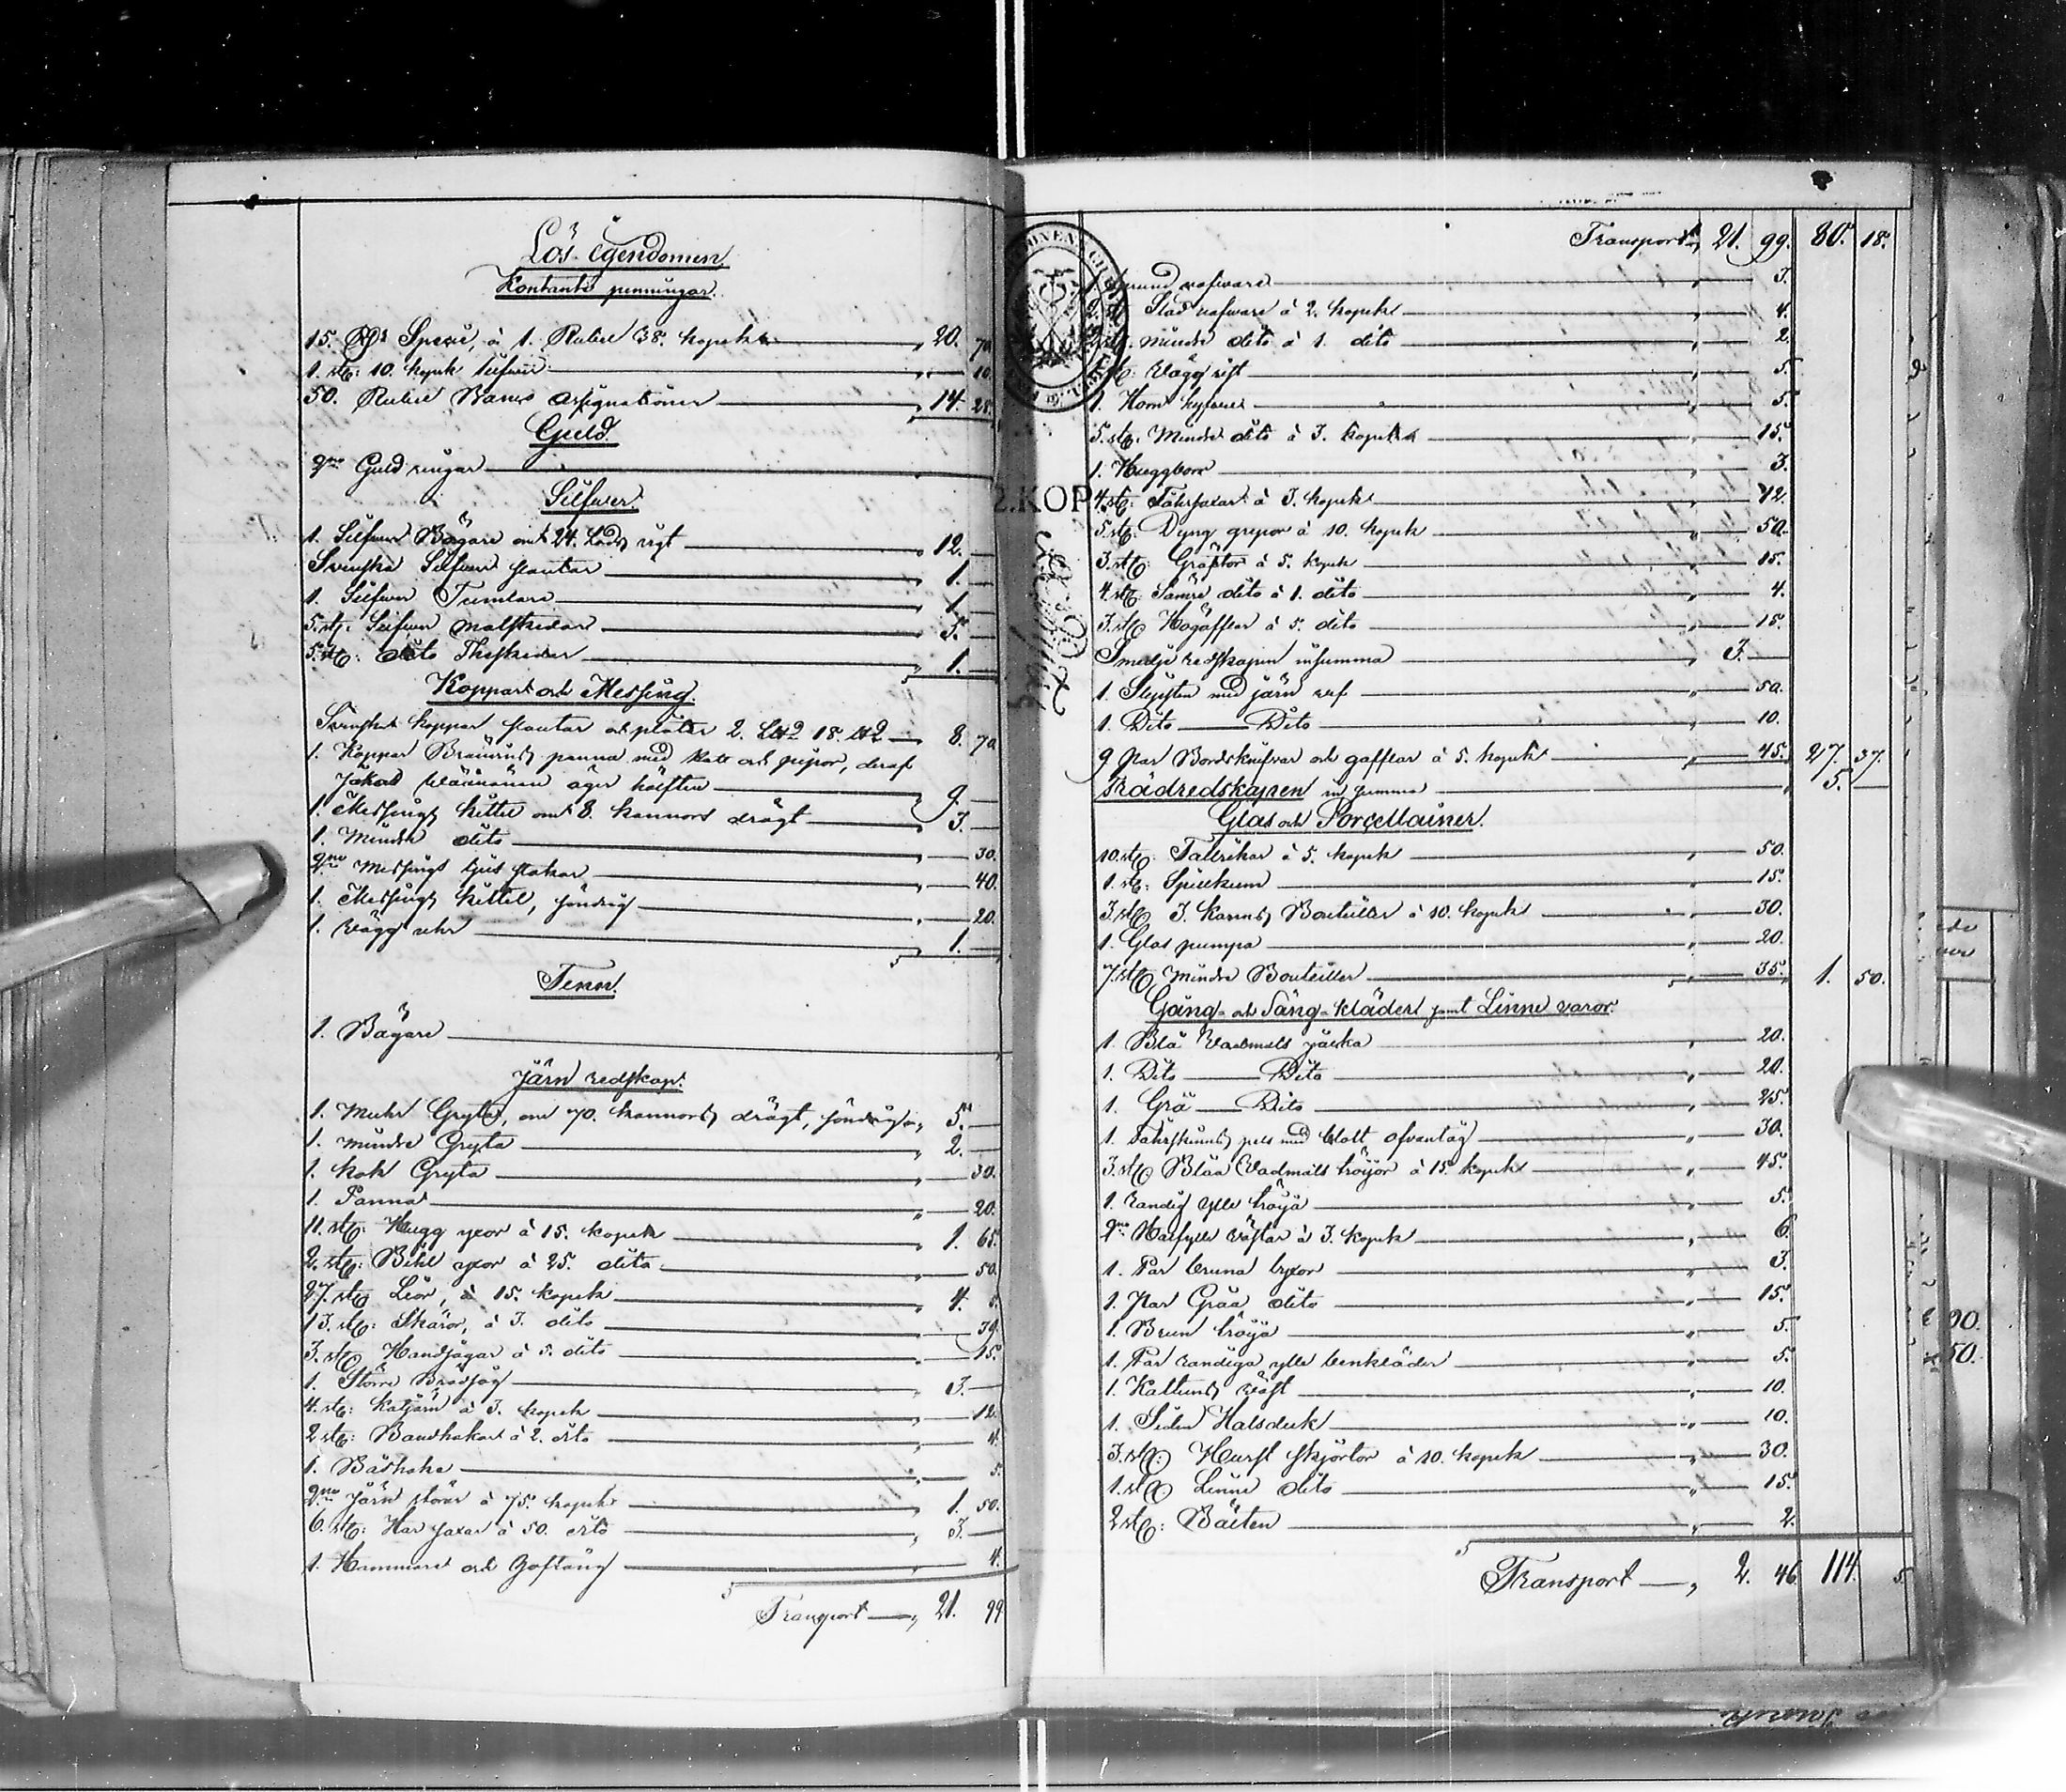 Lös Egendomen
Kontante penningar.
15. Rdr Specie, à 1. Rubel 38. kopek 20. 70
1. stg: 10. kopek silfwer 10.
50. Rubel Banco Assignationer 14. 28.
Guld
2ne Guld ringar
Silfwer.
1. Silfwer Bägare om 24. Lods vigt 12.
Svenska Silfwer slantar 1.
1. Silfwer Tumlare 1.
5. stg: Silfwer matskedar 5.
5. stg: dito Theskedar 1.
Koppar och Messing.
Svenska koppar slantar och plåtar 2. L℔ 18. ℔ 8. 70
1. Koppar Brännvins panna med hatt och pipor, deraf
Jakob Wäänänen äger hälften 9.
1. Messings kittel om 8. kannors drägt 3.
1. Mindre dito 30.
2ne Messings ljus stakar 40.
1. Messings kittel, söndrig 20.
1. Vägg uhr 1.
Tenn.
1. Bägare
Järn redskap.
1. Muhr Gryta, om 70. kannors drägt, söndrig 5.
1. mindre Gryta 2.
1. kok Gryta 30.
1. Panna 20.
11. stg: Hugg yxor à 15. kopek 1. 65.
2. stg: Bihl yxor à 25. dito 50.
27. stg Liar, à 15. kopek 4. 5.
13. stg: Skäror, à 3. dito 39.
3. stg Handsågar à 5. dito 15.
1. Större Brädsåg 3.
4. stg: katjärn à 3. kopek 12.
2 stg: Bandhakar à 2. dito 4.
1. Båtshake 5.
2ne Järn störar à 75. kopek 1. 50.
6. stg: Har saxar à 50. dito 3.
1. Hammare och Hoftång 4.
Transport 21. 99
Transport 21. 99. 80. 18.
nafware 3.
Stad nafware à 2. kopek 4.
mindre dito à 1. dito 2.
5.
1. 5.
5. stg. Mindre dito à 3. kopek 15.
1. Huggborr 3.
4. stg: Fåhrsaxar à 3. kopek 12.
5. stg: Dyng grepor à 10. kopek 50.
3. stg: Gräftor à 5. kopek 15.
4. stg: Sämre dito à 1. dito 4.
3. stg Högafflar à 5. dito 15.
Smedje redskapen in summa 3.
1. Slipsten med järn vef 50.
1. Dito Dito 10.
9 par Bordsknifvar och gafflar à 5. kopek 45. 27. 37.
Trädredskapen in summa 5.
Glas och Porcellainer.
10. stg: Tallrikar à 5. kopek 50.
1. stg: Spillkum 15.
3. stg 3. kanns Bouteiller à 10. kopek 30.
1. Glas pumpa 20.
7. stg mindre Bouteiller 35. 1. 50.
Gång- och Säng-kläder samt Linne varor.
1. Blå Vadmals jacka 20.
1. Dito Dito 20.
1. Grå Dito 25.
1. Fåhrskinns pels med blått ofvantåg 30.
3. stg Blåa Vadmals tröjor à 15. kopek 45.
1. randig ylle tröja 5.
2ne Halfylle västar à 3. kopek 6.
1. Par bruna byxor 3.
1. par Gråa dito 15.
1. Brun tröja 5.
1. Par randiga ylle benkläder 5.
1. Kattuns väst 10.
1. Siden Halsduk 10.
3. stg: Hurst skjortor à 10. kopek 30.
1. stg Linne dito 15.
2 stg: Bälten 2.
Transport 2. 46 114. 5.
2.KOP.